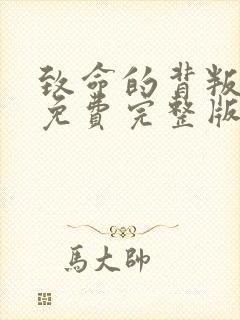 致命的背叛
免费完整版
馬大帥